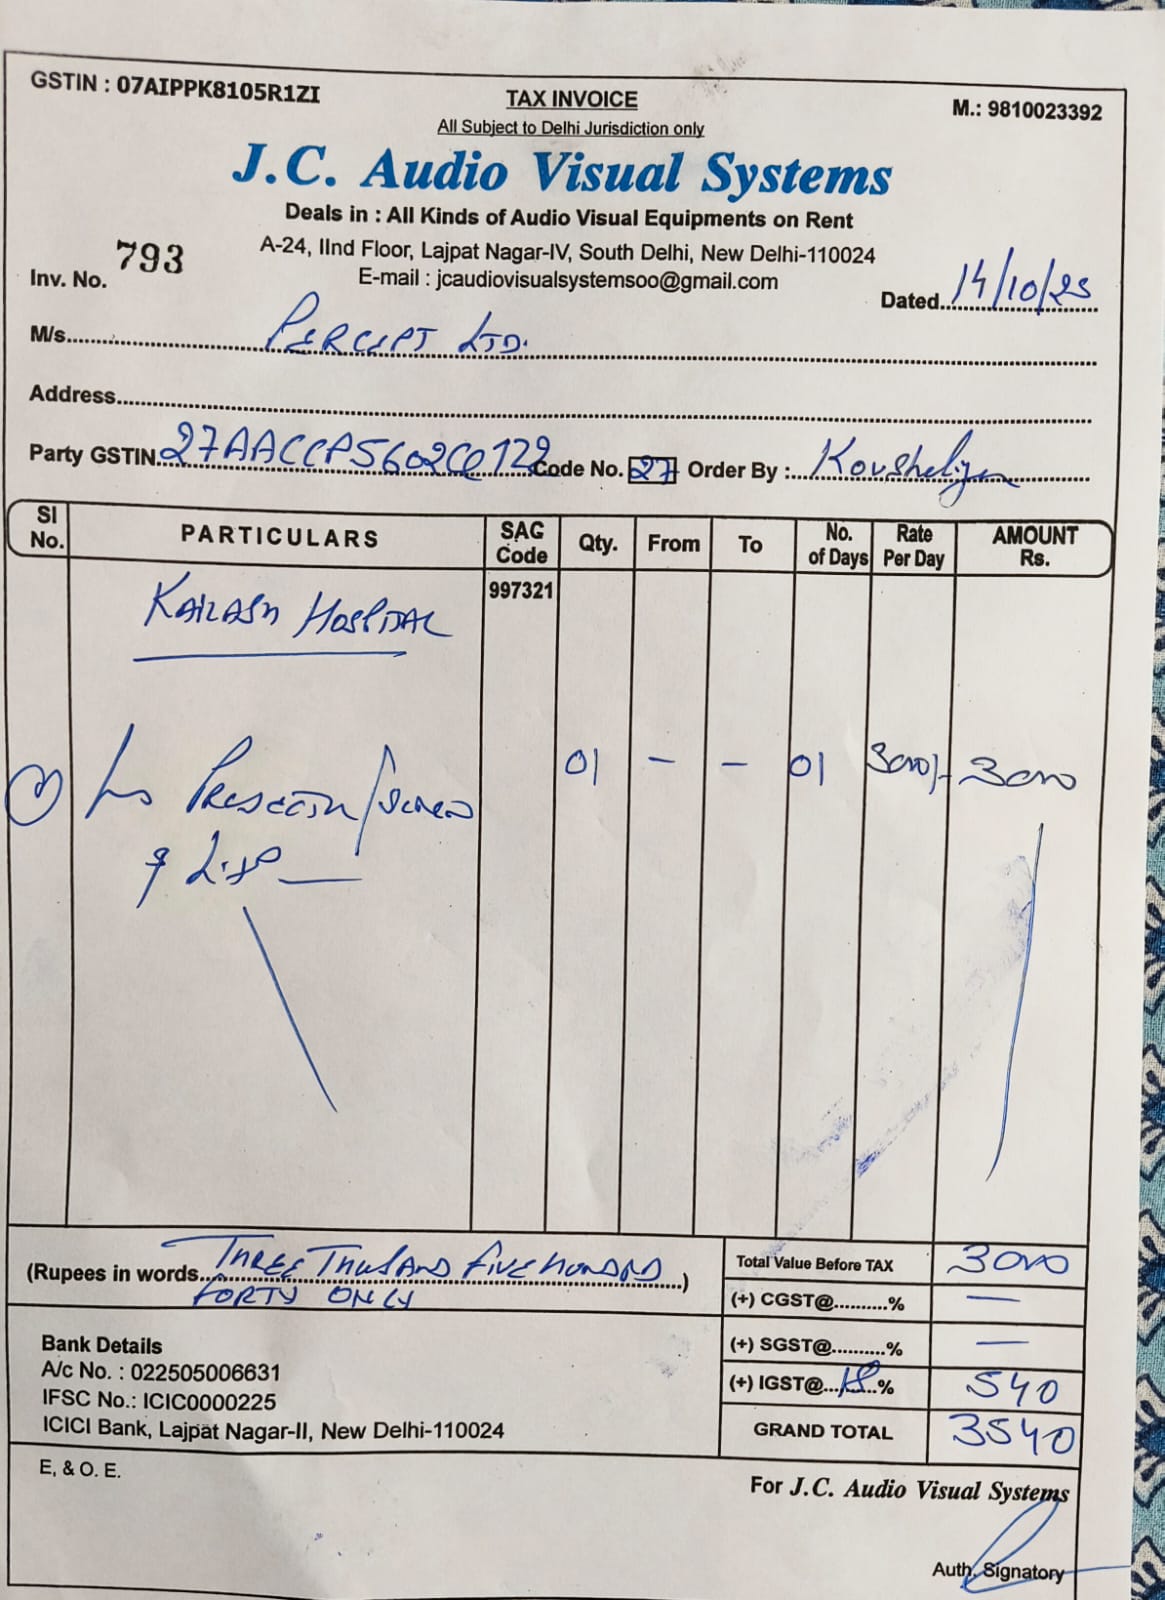 GSTIN : 07AIPPK8105R1ZI
TAX INVOICE
M.: 9810023392
All Subject to Delhi Jurisdiction only
J.C. Audio Visual Systems
Deals in : All Kinds of Audio Visual Equipments on Rent
A-24, IInd Floor, Lajpat Nagar-IV, South Delhi, New Delhi-110024
E-mail : jcaudiovisualsystemsoo@gmail.com
Inv. No. 793
Dated 14/10/25
M/s PERCEPT LTD.
Address
Party GSTIN 27AACCP5602Q1ZZ Code No. 27 Order By :
SI No. PARTICULARS SAG Code Qty. From To No. of Days Rate Per Day AMOUNT Rs.
KAILASH HOSPITAL 997321
01 – – 01 3000/- 3000
(Rupees in words THREE THUSAND FIVE HUNDRD
FORTY ONLY)
Total Value Before TAX 3000
(+) CGST@..........% —
(+) SGST@..........% —
(+) IGST@...18...% 540
GRAND TOTAL 3540
Bank Details
A/c No. : 022505006631
IFSC No.: ICIC0000225
ICICI Bank, Lajpat Nagar-II, New Delhi-110024
E, & O. E.
For J.C. Audio Visual Systems
Auth. Signatory